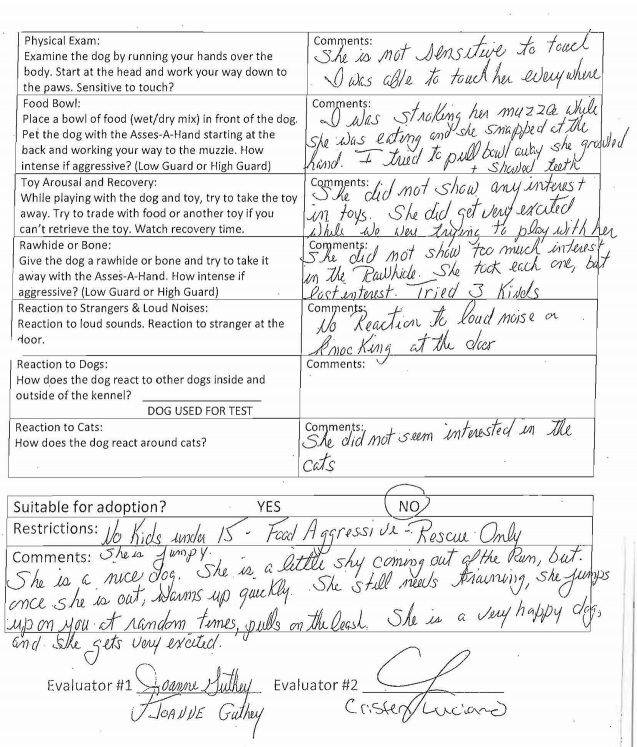 Physical Exam:
Examine the dog by running your hands over the
body. Start at the head and work your way down to
the paws. Sensitive to touch?
Comments:
She is not sensitive to touch
I was able to touch her everywhere
Food Bowl:
Place a bowl of food (wet/dry mix) in front of the dog.
Pet the dog with the Asses-A-Hand starting at the
back and working your way to the muzzle. How
intense if aggressive? (Low Guard or High Guard)
Comments:
I was stroking her muzzle while
she was eating and she snapped at the
hand. I tried to pull bowl away she growled
+ showed teeth
Toy Arousal and Recovery:
While playing with the dog and toy, try to take the toy
away. Try to trade with food or another toy if you
can't retrieve the toy. Watch recovery time.
Comments:
She did not show any interest
in toys. She did get very excited
while we were trying to play with her
Rawhide or Bone:
Give the dog a rawhide or bone and try to take it
away with the Asses-A-Hand. How intense if
aggressive? (Low Guard or High Guard)
Comments:
She did not show too much interest
in the Rawhide. She took each one, but
lost interest. Tried 3 Kinds
Reaction to Strangers & Loud Noises:
Reaction to loud sounds. Reaction to stranger at the
door.
Comments:
No Reaction to loud noise or
knocking at the door
Reaction to Dogs:
How does the dog react to other dogs inside and
outside of the kennel?
DOG USED FOR TEST
Comments:
Reaction to Cats:
How does the dog react around cats?
Comments:
She did not seem interested in the
cats
Suitable for adoption? YES NO
Restrictions: No Kids under 15 - Food Aggressive - Rescue Only
Comments: She is jumpy.
She is a nice dog. She is a little shy coming out of the Run, but
once she is out, warms up quickly. She still needs training, she jumps
up on you at random times, pulls on the leash. She is a very happy dog,
and she gets very excited.
Evaluator #1 Joanne Guthey Evaluator #2
JOANNE Guthey Cristen Luciano